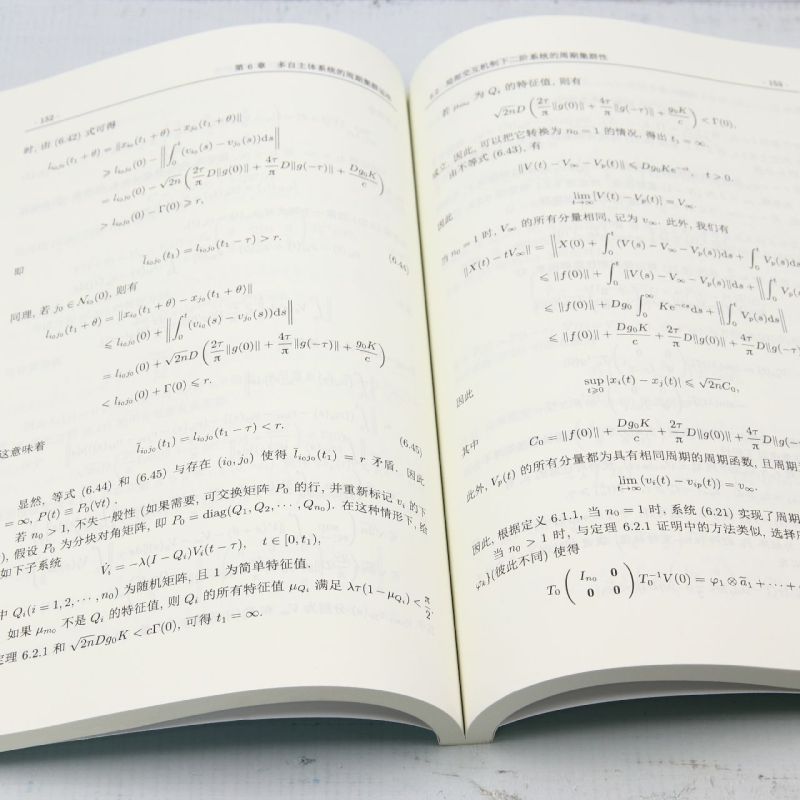 · 152 ·
第 6 章 多自主体系统的周期集群
时, 由 (6.42) 式可得
l_{i_0j_0}(t_1+θ) = ‖x_{i_0}(t_1+θ) − x_{j_0}(t_1+θ)‖
⩾ l_{i_0j_0}(0) − ‖∫_0^t (v_{i_0}(s) − v_{j_0}(s))ds‖
= l_{i_0j_0}(0) − √2n (2τ/π D‖g(0)‖ + 4τ/π D‖g(−τ)‖ + Dg_0K/c)
> l_{i_0j_0}(0) − Γ(0) ⩾ r,
即
l̄_{i_0j_0}(t_1) = l_{i_0j_0}(t_1 − τ) > r. (6.44)
同理, 若 j_0 ∈ N_{i_0}(0), 则有
l_{i_0j_0}(t_1+θ) = ‖x_{i_0}(t_1+θ) − x_{j_0}(t_1+θ)‖
⩽ l_{i_0j_0}(0) + ‖∫_0^t (v_{i_0}(s) − v_{j_0}(s))ds‖
= l_{i_0j_0}(0) + √2n D (2τ/π ‖g(0)‖ + 4τ/π ‖g(−τ)‖ + g_0K/c)
< l_{i_0j_0}(0) + Γ(0) ⩽ r.
这意味着
l̄_{i_0j_0}(t_1) = l_{i_0j_0}(t_1 − τ) < r. (6.45)
显然, 等式 (6.44) 和 (6.45) 与存在 (i_0, j_0) 使得 l̄_{i_0j_0}(t_1) = r 矛盾. 因此
= ∞, P(t) ≡ P_0(∀t) .
若 n_0 > 1, 不失一般性 (如果需要, 可交换矩阵 P_0 的行, 并重新标记 v_i 的下
), 假设 P_0 为分块对角矩阵, 即 P_0 = diag(Q_1, Q_2, ···, Q_{n_0}). 在这种情形下, 给
如下子系统
V̇_i = −λ(I − Q_i)V_i(t − τ), t ∈ [0, t_1),
中 Q_i(i = 1, 2, ···, n_0) 为随机矩阵, 且 1 为简单特征值.
如果 μ_{m_0} 不是 Q_i 的特征值, 则 Q_i 的所有特征值 μ_{Q_i} 满足 λτ(1−μ_{Q_i}) < π/2
定理 6.2.1 和 √2n Dg_0K < cΓ(0), 可得 t_1 = ∞.
6.2 局部交互机制下二阶系统的周期集群性
· 153 ·
若 μ_{m_0} 为 Q_i 的特征值, 则有
√2n D (2τ/π ‖g(0)‖ + 4τ/π ‖g(−τ)‖ + g_0K/c) < Γ(0).
成立. 因此, 可以把它转换为 n_0 = 1 的情况, 得出 t_1 = ∞.
由不等式 (6.43), 有
‖V(t) − V_∞ − V_p(t)‖ ⩽ Dg_0Ke^{−ct}, t > 0.
因此
lim_{t→∞}[V(t) − V_p(t)] = V_∞.
当 n_0 = 1 时, V_∞ 的所有分量相同, 记为 v_∞. 此外, 我们有
‖X(t) − tV_∞‖ = ‖X(0) + ∫_0^t (V(s) − V_∞ − V_p(s))ds + ∫_0^t V_p(s)ds
⩽ ‖f(0)‖ + ∫_0^t ‖V(s) − V_∞ − V_p(s)‖ds + ‖∫_0^t V_p(s)
⩽ ‖f(0)‖ + Dg_0 ∫_0^∞ Ke^{−cs}ds + ‖∫_0^t V_p(s)ds‖
⩽ ‖f(0)‖ + Dg_0K/c + 2τ/π D‖g(0)‖ + 4τ/π D‖g(−τ)
因此
sup_{t⩾0} |x_i(t) − x_j(t)| ⩽ √2n C_0,
其中
C_0 = ‖f(0)‖ + Dg_0K/c + 2τ/π D‖g(0)‖ + 4τ/π D‖g(−
此外, V_p(t) 的所有分量都为具有相同周期的周期函数, 且周期
lim_{t→∞}(v_i(t) − v_{ip}(t)) = v_∞.
因此, 根据定义 6.1.1, 当 n_0 = 1 时, 系统 (6.21) 实现了周期
当 n_0 > 1 时, 与定理 6.2.1 证明中的方法类似, 选择
φ_k}(彼此不同) 使得
T_0 ( I_{n_0} 0 ; 0 0 ) T_0^{−1}V(0) = φ_1 ⊗ a̅_1 + ··· +